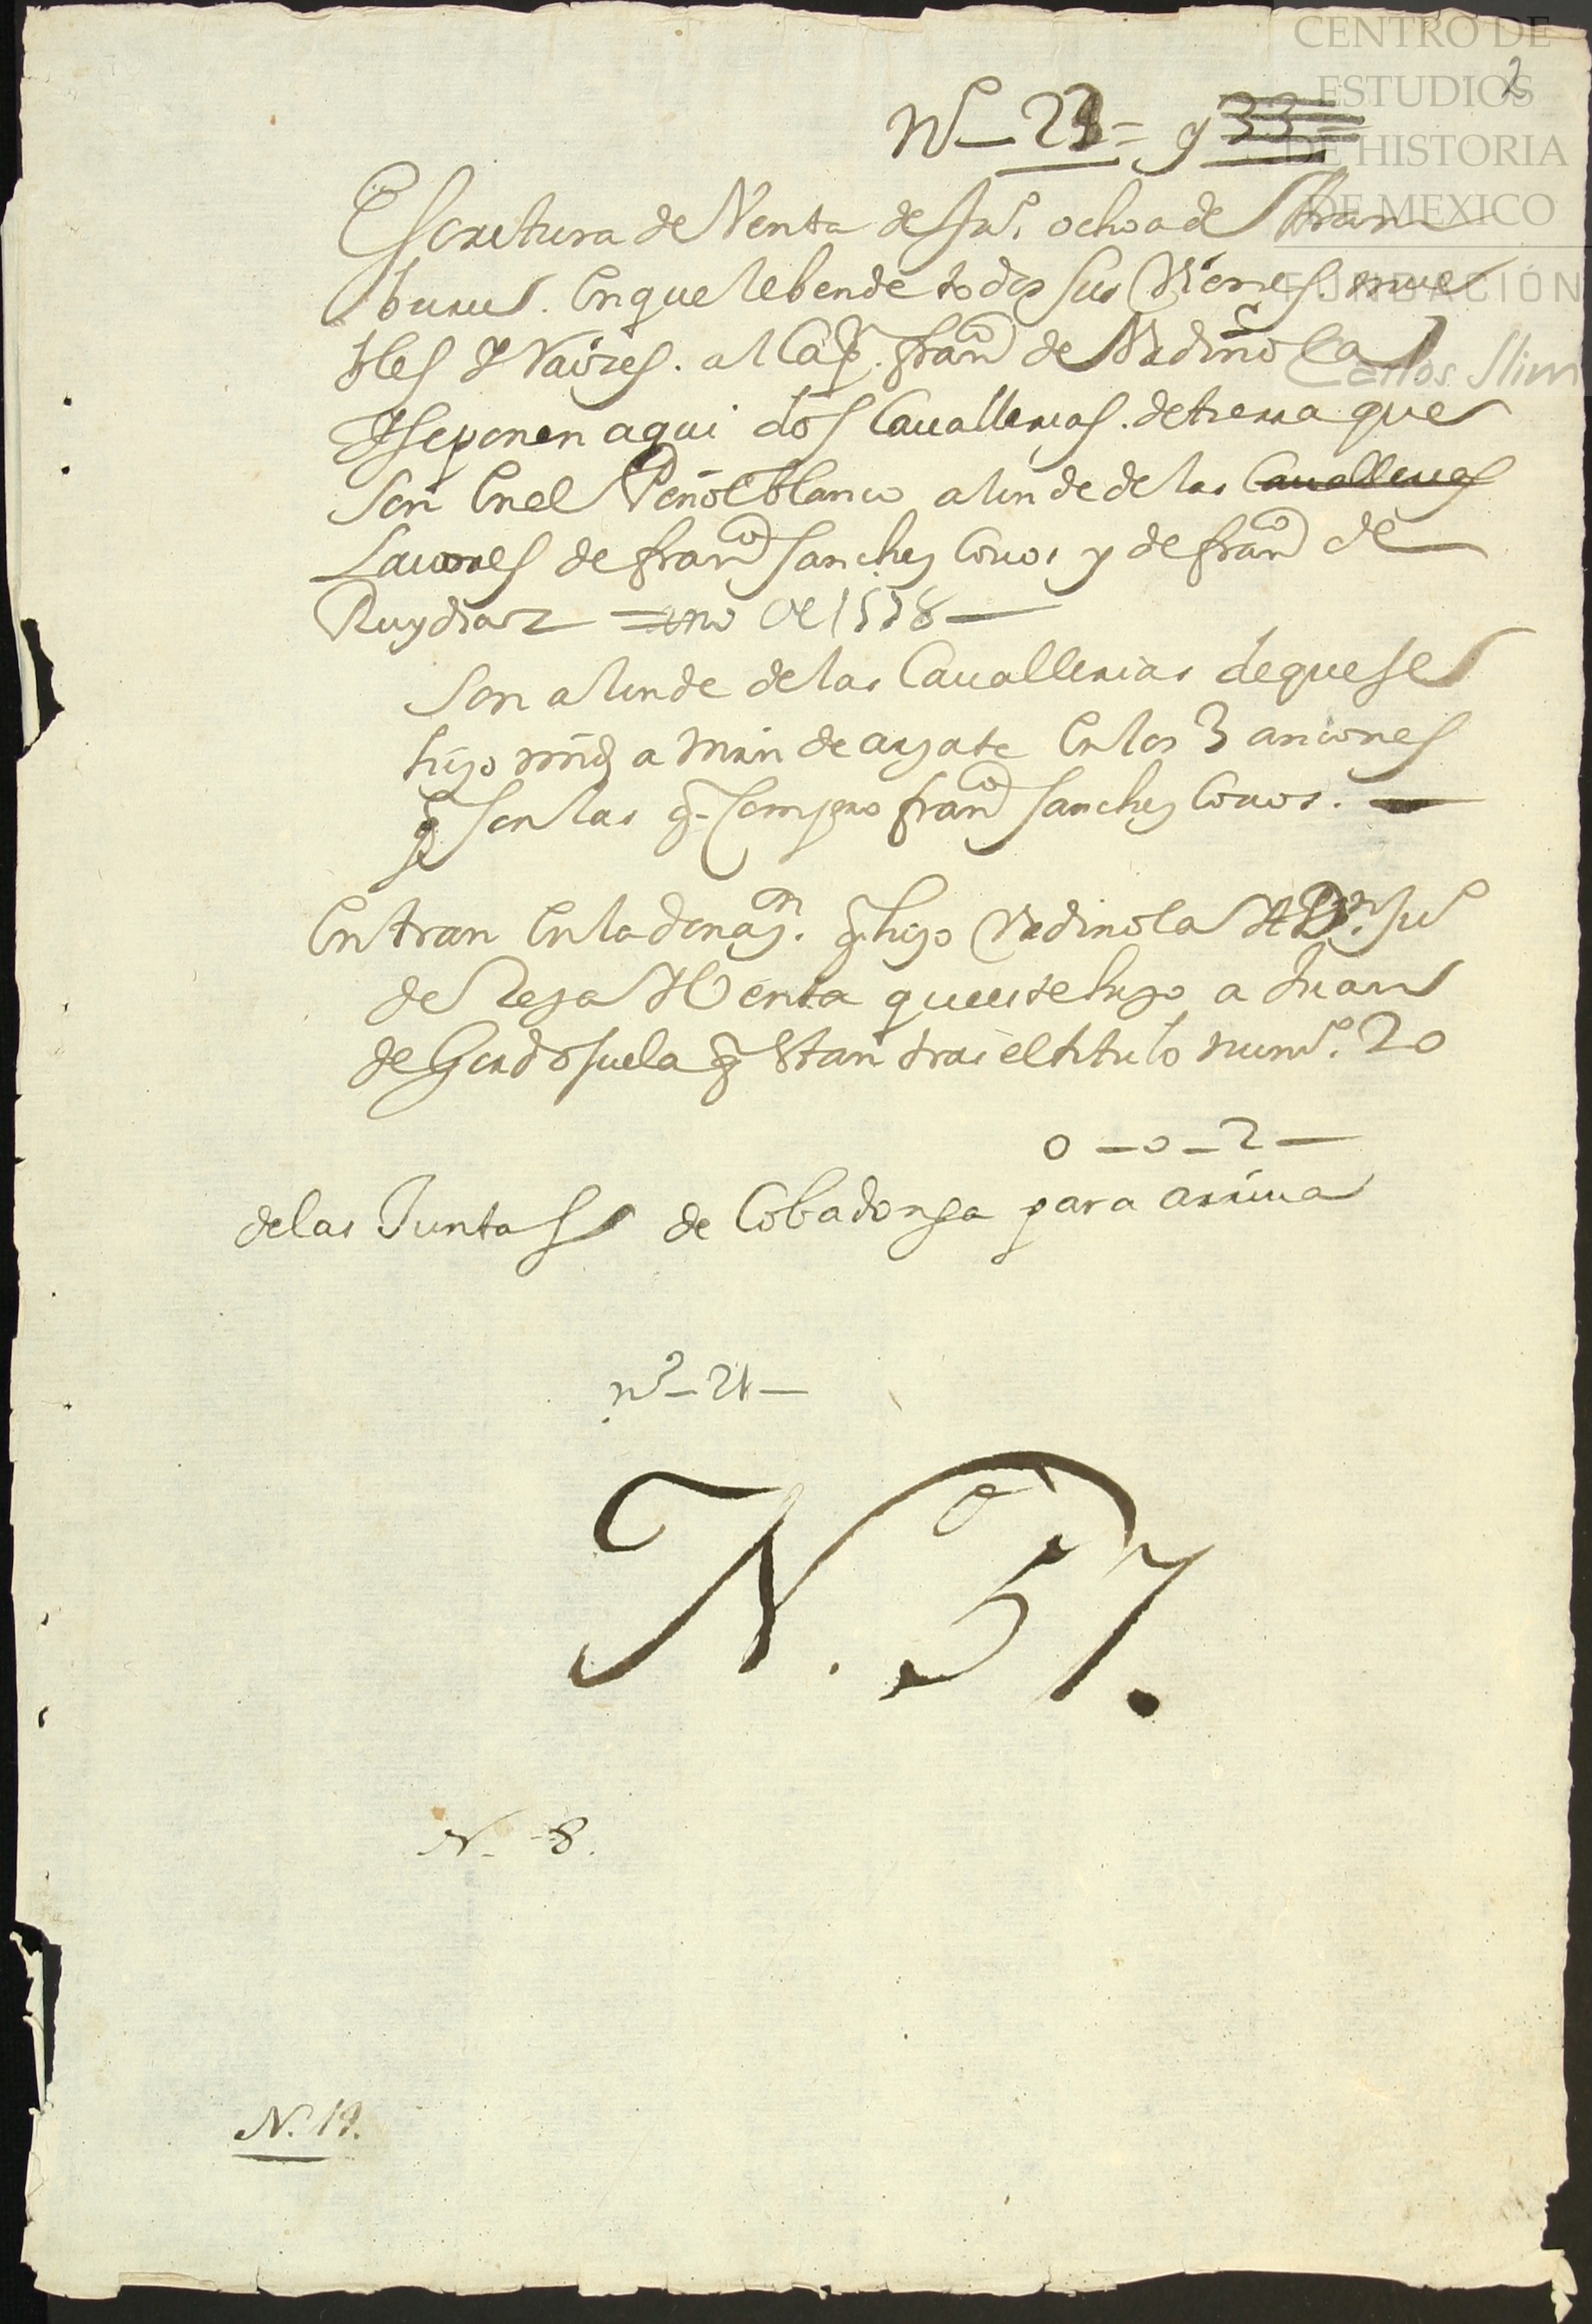 CENTRO DE
ESTUDIOS
DE HISTORIA
DE MEXICO
FUNDACIÓN
Carlos Slim
2
Nº — 21 = y 33 =
Escritura de Venta de Juº. ochoa de
En que le bende todos sus Vienes. mue
bles Y Raizes. al Cap. franco de Vrdiñola
Y se ponen aqui dos Cauallerias. de tierra que
son En el Peñol blanco a linde de las Cauallerias
Lauores de franco sanchez Couos y de franco de
Ruydiaz = año de 1578 —
son a linde de las Cauallerias de que se
hizo mrd a Min de ayate En los 3 ancones
q son las q. Compro franco sanchez Couos. —
Entran En la donaçn. q hizo Vrdinola A Dn. Juº
de Venta que este hizo a Juan
de Gordojuela q Estan tras el titulo numº. 20
o — o — 2 —
de las Juntas de Cobadonga para arriua
nº — 21 —
N.º 57.
N. 8.
N. 19.